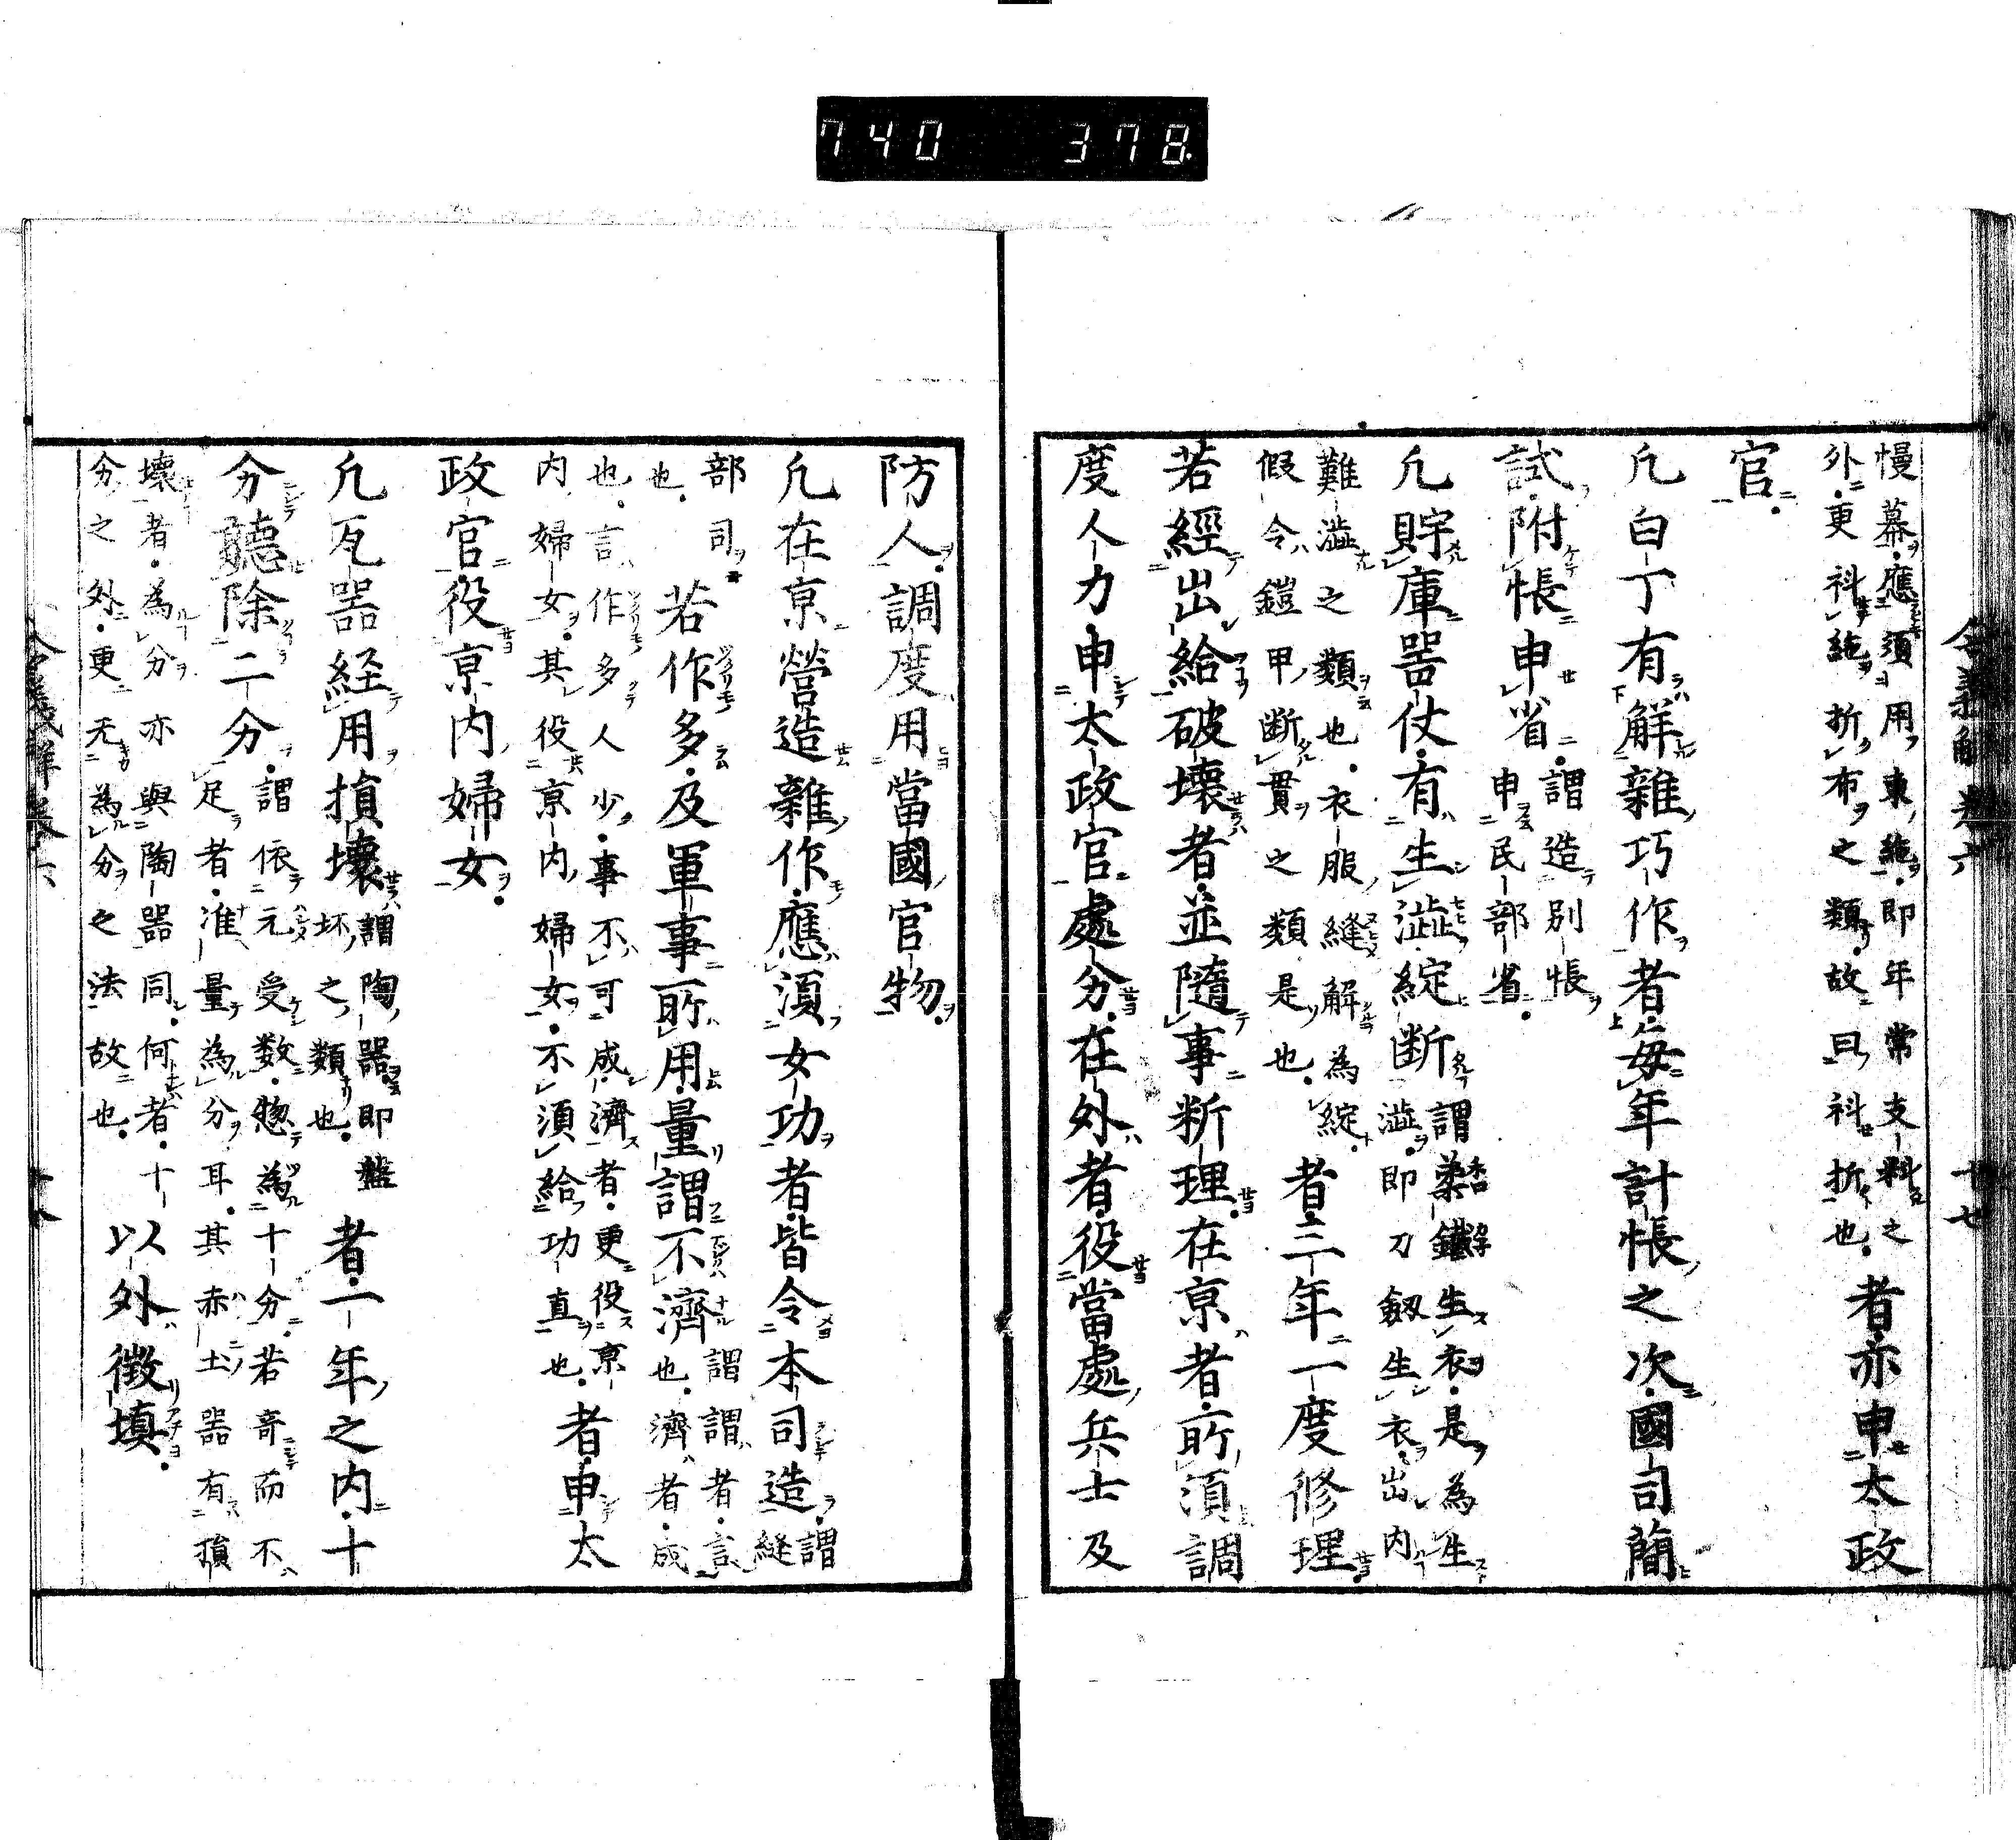 740 378
幔幕應須用東絁即年常支料之
外更科絁折布之類故曰科折也
者亦申太政
官
凡白丁有解雜巧作者毎年計帳之次國司簡
試附帳申省
謂造別帳
申民部省
凡貯庫噐仗有生澁綻断
謂柔鐵生衣是為生
澁即刀劔生衣出内
難澁之類也衣服縫解為綻
假令鎧甲断貫之類是也
者三年一度修理
若經出給破壊者並隨事断理在京者所須調
度人力申太政官處分在外者役當處兵士及
防人調度用當國官物
凡在京營造雜作應須女功者皆令本司造
謂縫
部司
也
若作多及軍事所用量謂不濟
謂謂者言
也濟者成
也言作多人少事不可成濟者更役京
内婦女其役京内婦女不須給功直也
者申太
政官役京内婦女
凡瓦噐経用損壊
謂陶器即盤
坏之類也
者一年之内十
分聽除二分
謂依元受数惣為十分若竒而不
足者准量為分耳其赤土器有損
壊者為分亦與陶器同何者十
分之外更无為分之法故也
以外徴填
令義解巻六 十七